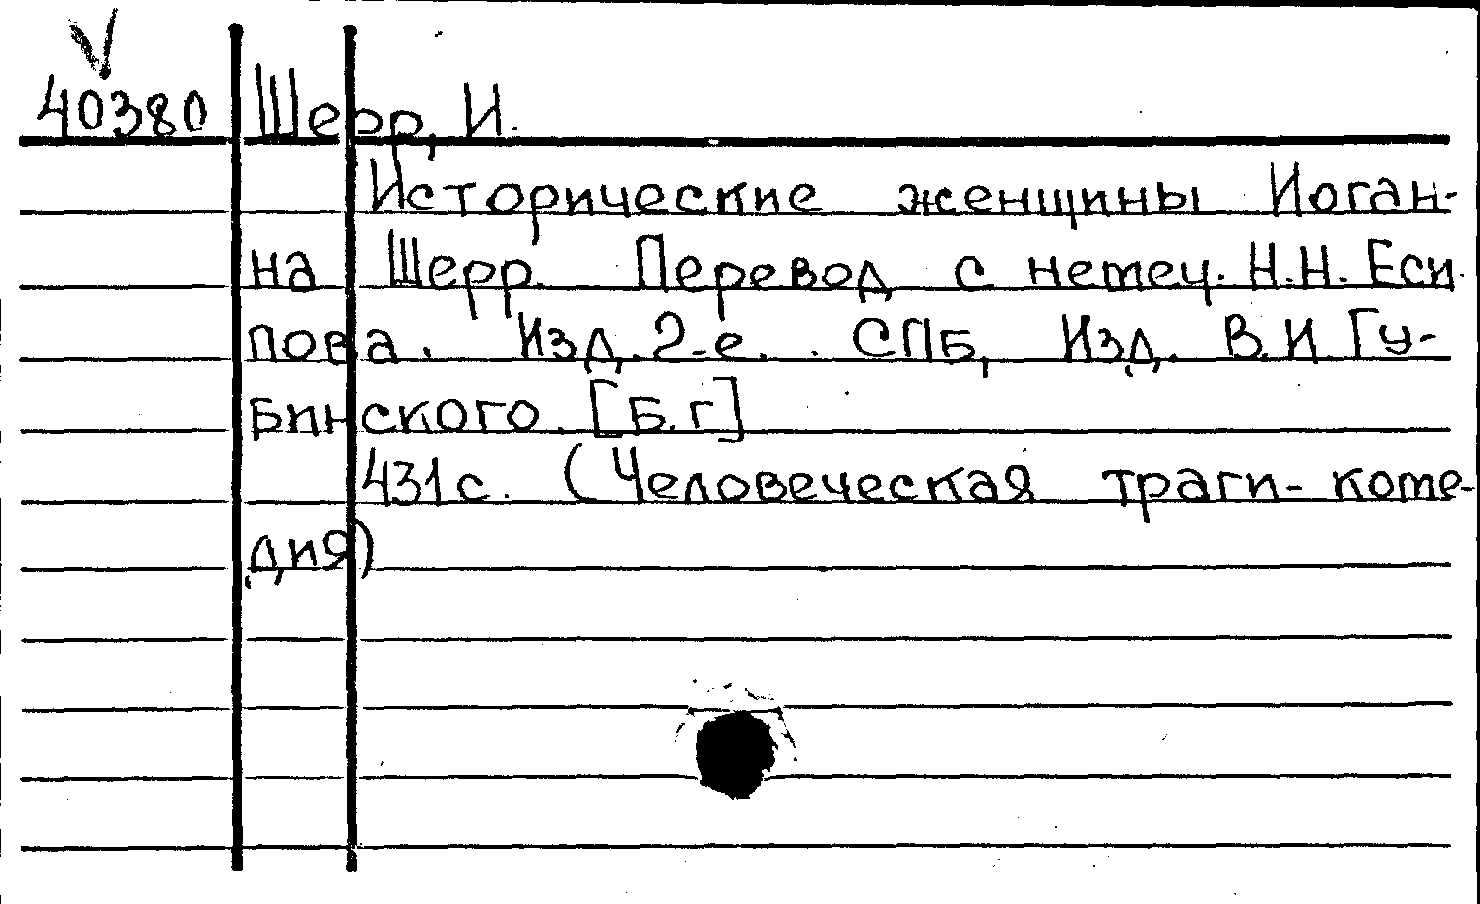 40380 Шерр, И.
Исторические женщины Иоган-
на Шерр. Перевод с немец. Н.Н. Еси
пова. Изд. 2-е. СПБ, Изд. В.И Гу-
бинского. [Б.г]
431с. (Человеческая траги-коме-
дия)